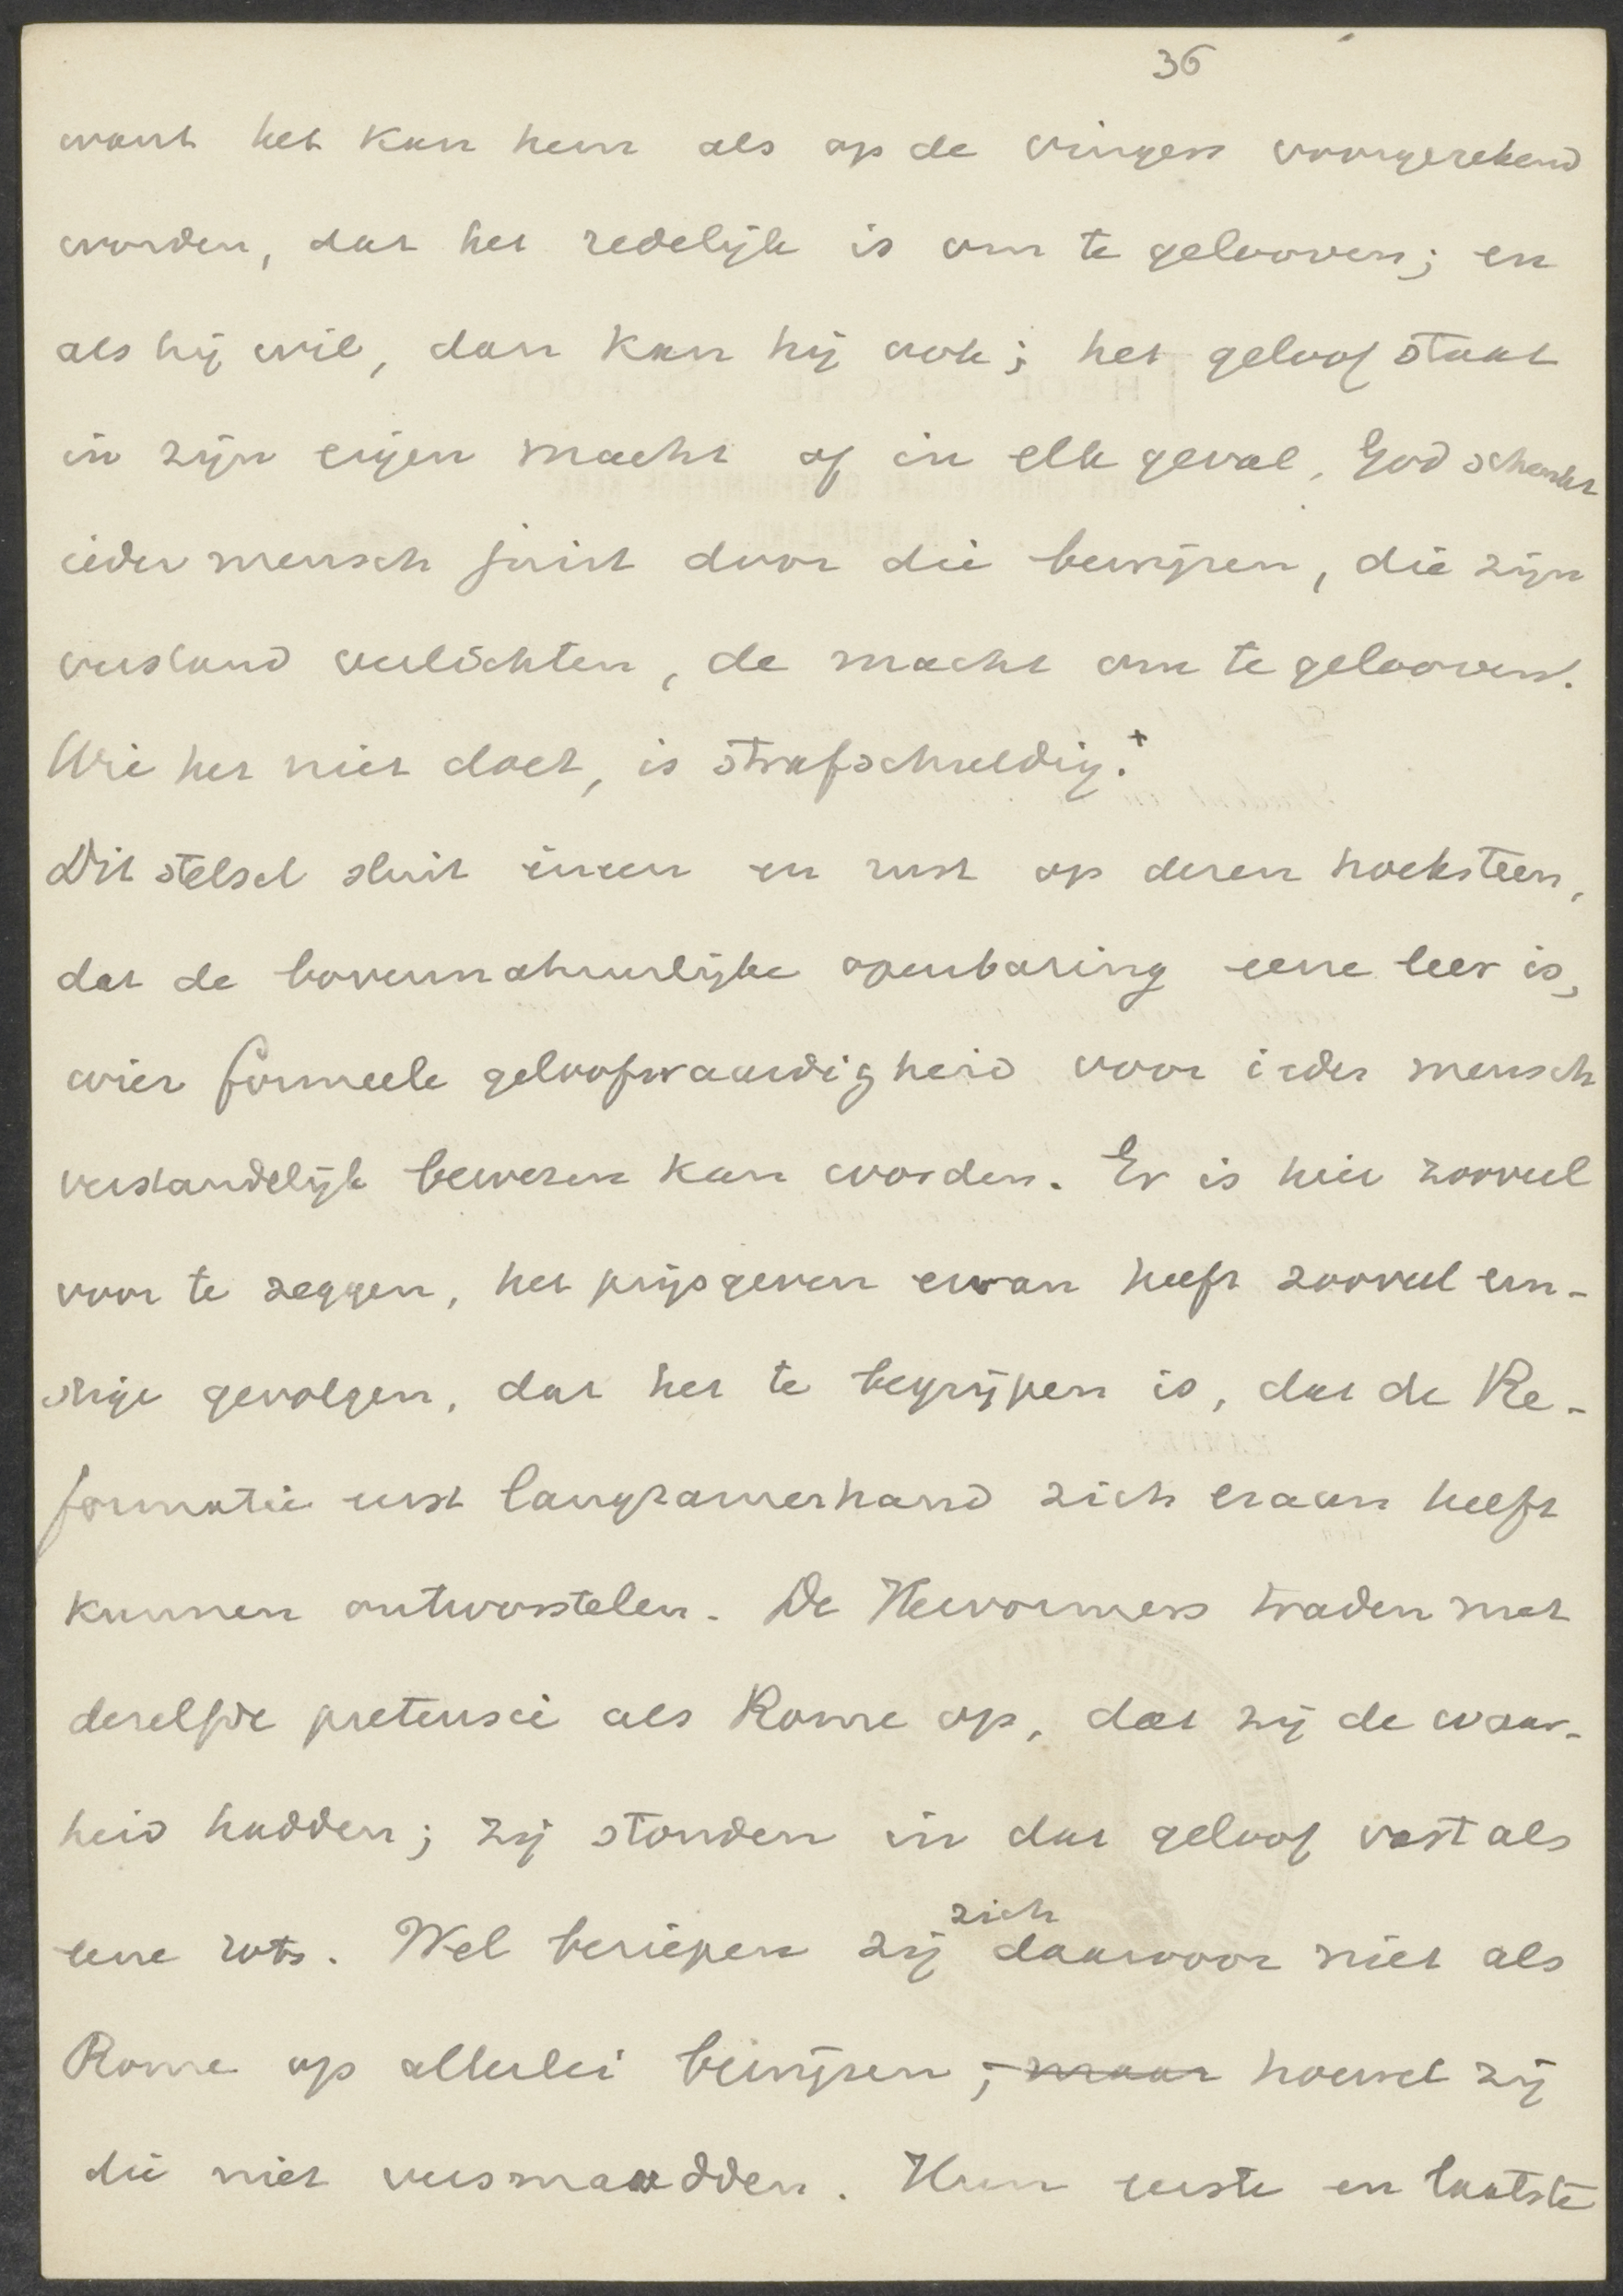 36
want het kan hem als op de vingers voorgerekend
worden, dat het redelijk is om te gelooven; en
als hij wil, dan kan hij ook; het geloof staat
in zijn eigen macht of in elk geval, God schenkt
ieder mensch juist door die bewijzen, die zijn
verstand verlichten, de macht om te gelooven.
Wie het niet doet, is strafschuldig.+
Dit stelsel sluit ineen en rust op dezen hoeksteen,
dat de bovennatuurlijke openbaring eene leer is,
wier formeele geloofwaardigheid voor ieder mensch
verstandelijk bewezen kan worden. Er is hier zooveel
voor te zeggen, het prijsgeven ervan heeft zooveel ern-
stige gevolgen, dat het te begrijpen is, dat de Re-
formatie eerst langzamerhand zich eraan heeft
kunnen ontworstelen. De Hervormers traden met
dezelfde pretensie als Rome op, dat zij de waar-
heid hadden; zij stonden in dat geloof vast als
eene rots. Wel beriepen zij zich daarvoor niet als
Rome op allerlei bewijzen, maar hoewel zij
die niet versmaadden. Hun eerste en laatste